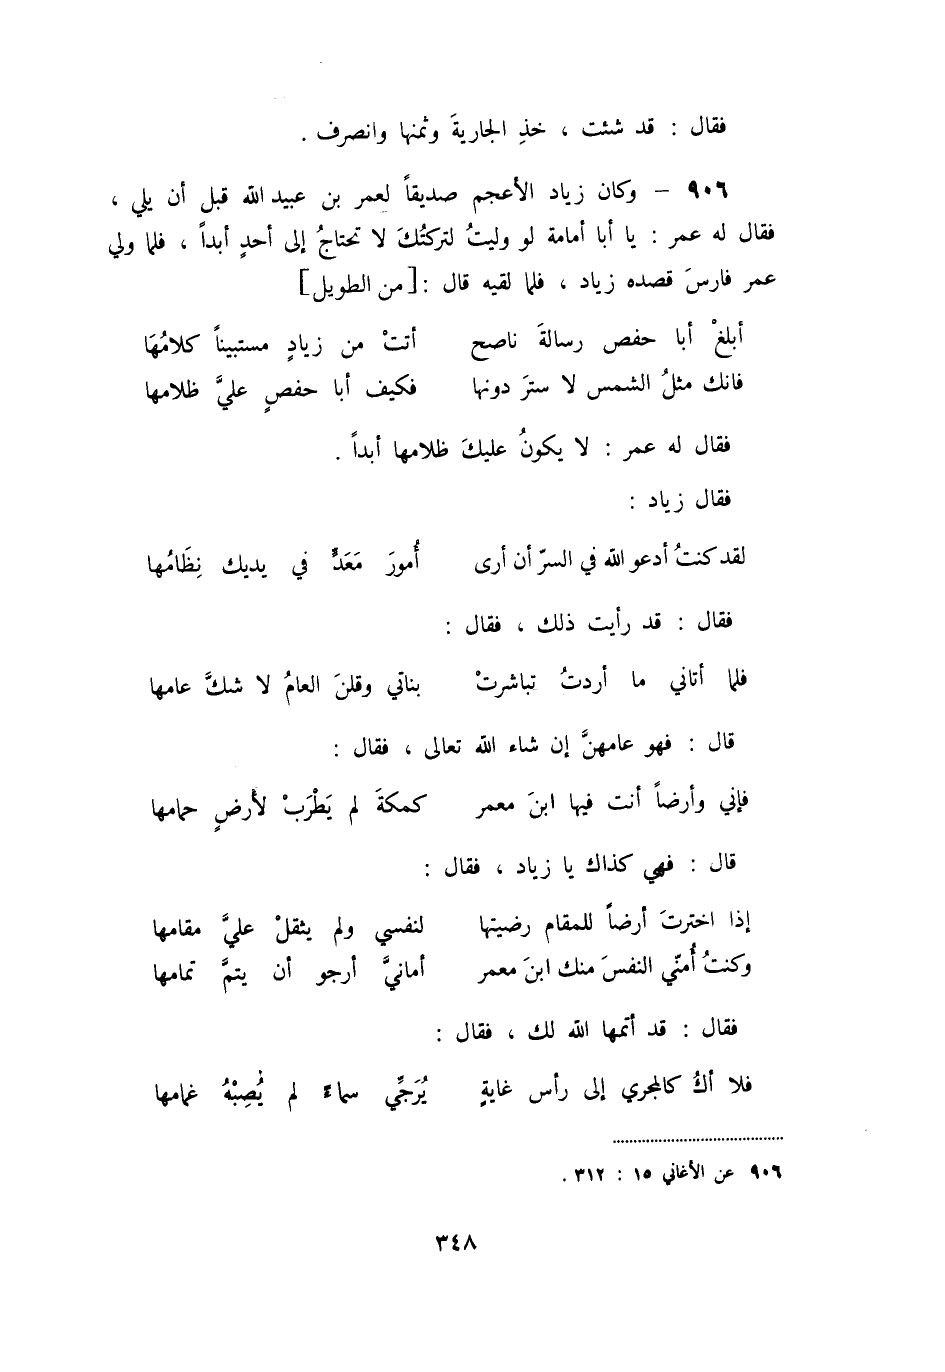 فقال : قد شئت ، خذِ الجاريةَ وثمنها وانصرف .
٩٠٦ – وكان زياد الأعجم صديقاً لعمر بن عبيد الله قبل أن يلي ،
فقال له عمر : يا أبا أمامة لو وليتُ لتركتُكَ لا تحتاجُ إلى أحدٍ أبداً ، فلما ولي
عمر فارسَ قصده زياد ، فلما لقيه قال :[من الطويل]
أبلغْ أبا حفص رسالةَ ناصح أتتْ من زيادٍ مستبيناً كلامُهَا
فانك مثلُ الشمس لا سترَ دونها فكيف أبا حفصٍ عليَّ ظلامها
فقال له عمر : لا يكونُ عليكَ ظلامها أبداً .
فقال زياد :
لقد كنتُ أدعو الله في السرّ أن أرى أُمورَ مَعَدٍّ في يديك نِظَامُها
فقال : قد رأيت ذلك ، فقال :
فلما أتاني ما أردتُ تباشرتْ بناتي وقلنَ العامُ لا شكَّ عامها
قال : فهو عامهنَّ إن شاء الله تعالى ، فقال :
فإني وأرضاً أنت فيها ابنَ معمر كمكةَ لم يَطْرَبْ لأرضٍ حمامها
قال : فهي كذاك يا زياد ، فقال :
إذا اخترتَ أرضاً للمقام رضيتها لنفسي ولم يثقلْ عليَّ مقامها
وكنتُ أُمنّي النفسَ منك ابنَ معمر أمانيَّ أرجو أن يتمَّ تمامها
فقال : قد أتمها الله لك ، فقال :
فلا أكُ كالمجري إلى رأس غايةٍ يُرَجِّي سماءً لم يُصِبْهُ غمامها
٩٠٦ عن الأغاني ١٥ : ٣١٢ .
٣٤٨